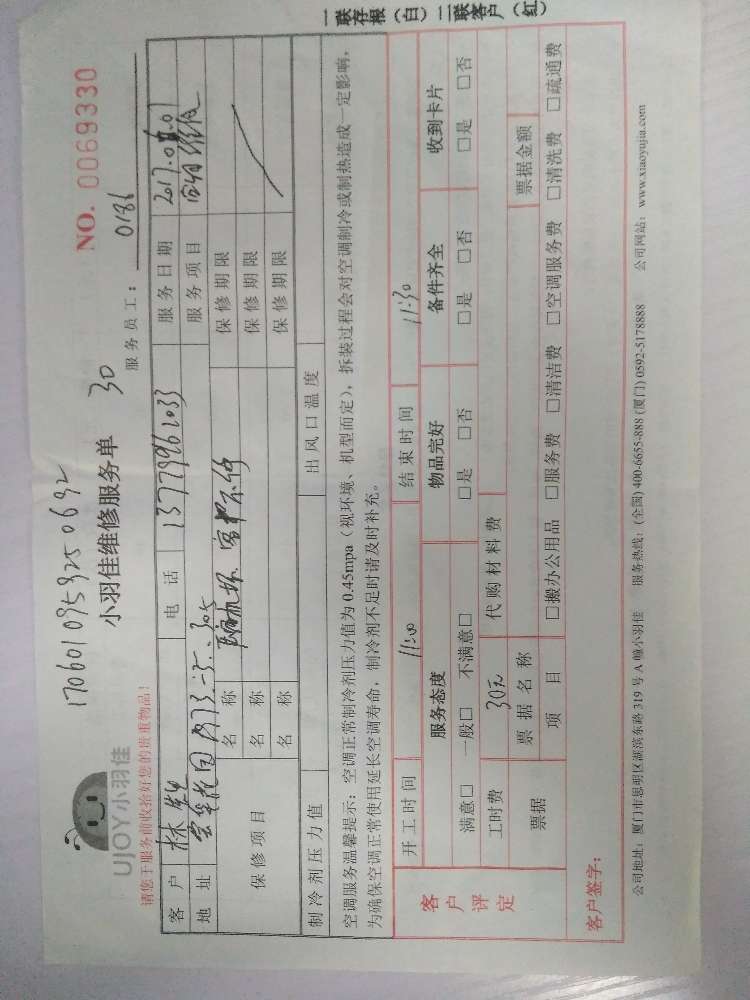 17060109595250692
小羽佳维修服务单 30
NO. 0069330
UJOY小羽佳
请您于服务前收拾好您的贵重物品!
服务员工: 0186
客户 林先生 电话 13779961033 服务日期
地址 服务项目 空调维修
保修项目 名称 保修期限
名称 保修期限
名称 保修期限
制冷剂压力值 出风口温度
空调服务温馨提示:空调正常制冷剂压力值为 0.45mpa(视环境、机型而定),拆装过程会对空调制冷或制热造成一定影响,
为确保空调正常使用延长空调寿命,制冷剂不足时请及时补充。
开工时间 11:00 结束时间 11:30
客户评定 服务态度 物品完好 备件齐全 收到卡片
满意□ 一般□ 不满意□ □是 □否 □是 □否 □是 □否
工时费 30元 代购材料费
票据 票据名称 票据金额
项目 □搬办公用品 □服务费 □清洁费 □空调服务费 □清洗费 □疏通费
客户签字:
公司地址:厦门市思明区湖滨东路 319 号 A 幢小羽佳 服务热线:(全国) 400-6655-888 (厦门) 0592-5178888 公司网站:www.xiaoyujia.com
一联存根(白)二联客户(红)